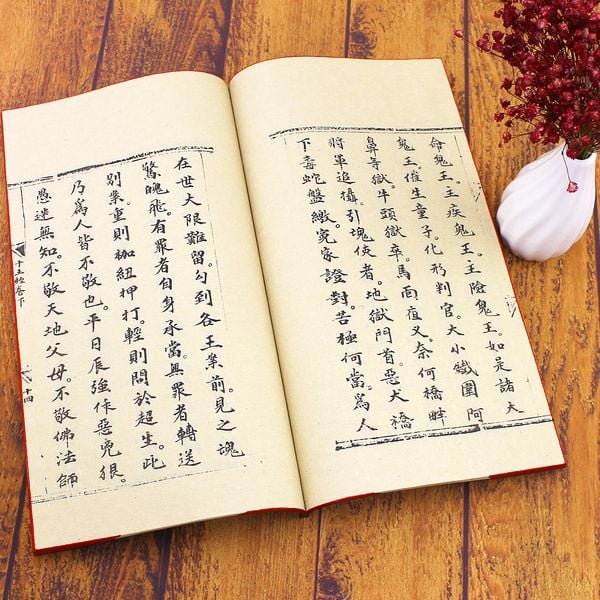 命鬼王。王疾鬼王。王險鬼王。如是諸大
鬼王催生童子。化形判官。大小鐵圍阿
鼻等獄。牛頭獄卒。馬面夜叉奈何橋畔
將軍追攝引魂使者。地獄門首。惡犬橋
下毒蛇盤繳。冤家證對苦極何當。爲人
在世大限難留。勾到各王業前見之魂
驚魄飛。有罪者自身承當。無罪者轉送
别業。重則枷紐押打。輕則問於超生。此
乃爲人皆不敬也。平日辰強作惡兇狠。
愚迷無知。不敬天地父母。不敬佛法師
十王經卷下
十四